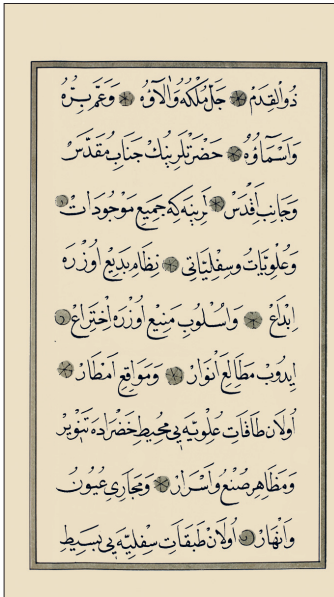 ذوالقدم جل ملكه والاؤه وعم بره
واسماؤه حضرتلرينك جناب مقدس
وجانب اقدس لرينه كه جميع موجودات
وعلويات وسفلياتى نظام بديع اوزره
ابداع واسلوب منيع اوزره اختراع
ايدوب مطالع انوار ومواقع امطار
اولان طاقات علويه يى محيط خضراده تنوير
ومظاهر صنع واسرار ومجارى عيون
وانهار اولان طبقات سفليه يى بسيط